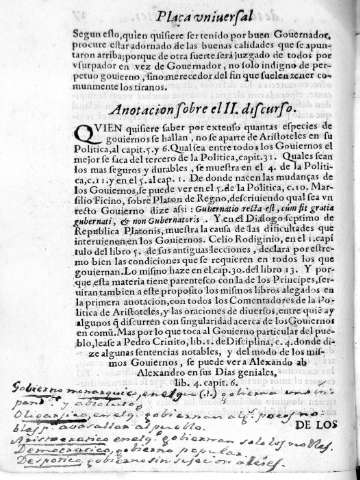 Plaça vniuersal
Segun esto, quien quisiere ser tenido por buen Gouernador,
procure estar adornado de las buenas calidades que se apun-
taron arriba; porque de otra suerte será juzgado de todos por
vsurpador en vez de Gouernador, no solo indigno de per-
petuo gouierno, sino merecedor del fin que suelen tener co-
munmente los tiranos.
Anotacion sobre el II. discurso.
QVIEN quisiere saber por extenso quantas especies de
gouiernos se hallan, no se aparte de Aristoteles en su
Politica, al capit. 5. y 6. Qual sea entre todos los Gouiernos el
mejor se saca del tercero de la Politica, capit. 31. Quales sean
los mas seguros y durables, se muestra en el 4. de la Politi-
ca, c. 11. y en el 5. al cap. 1. De donde nacen las mudanças de
los Gouiernos, se puede ver en el 5. de la Politica, c. 10. Mar-
silio Ficino, sobre Platon de Regno, descriuiendo qual sea vn
recto Gouierno dize assi: Gubernatio recta est, cùm sit gratia
gubernati, & non Gubernatoris. Y en el Dialogo septimo de
Republica Platonis, muestra la causa de las dificultades que
interuienen en los Gouiernos. Celio Rodiginio, en el 1. capi
tulo del libro 5. de sus antiguas lecciones, declara por estre-
mo bien las condiciones que se requieren en todos los que
gouiernan. Lo mismo haze en el cap. 30. del libro 13. Y por-
que esta materia tiene parentesco con la de los Principes, ser-
uiran tambien a este proposito los mismos libros alegados en
la primera anotacion, con todos los Comentadores de la Po-
litica de Aristoteles, y las oraciones de diuersos, entre quiẽ ay
algunos q̃ discurren con singularidad acerca de los Gouiernos
en comũ. Mas por lo que toca al Gouierno particular del pue-
blo, lease a Pedro Crinito, lib. 2. de Disciplina, c. 4. donde di-
ze algunas sentencias notables, y del modo de los mis-
mos Gouiernos, se puede ver a Alexandro ab
Alexandro en sus Dias geniales,
lib. 4. capit. 6.
Gobierno monarquico, en el que gobierna un
DE LOS
Oligarquico, en el q. gobiernan alg. pocos no-
bles al pueblo.
Aristocratico en el q. gobiernan solo los nobles.
Democratico, gobierno popular.
Despotico, gobierno sin sujecion a leies.